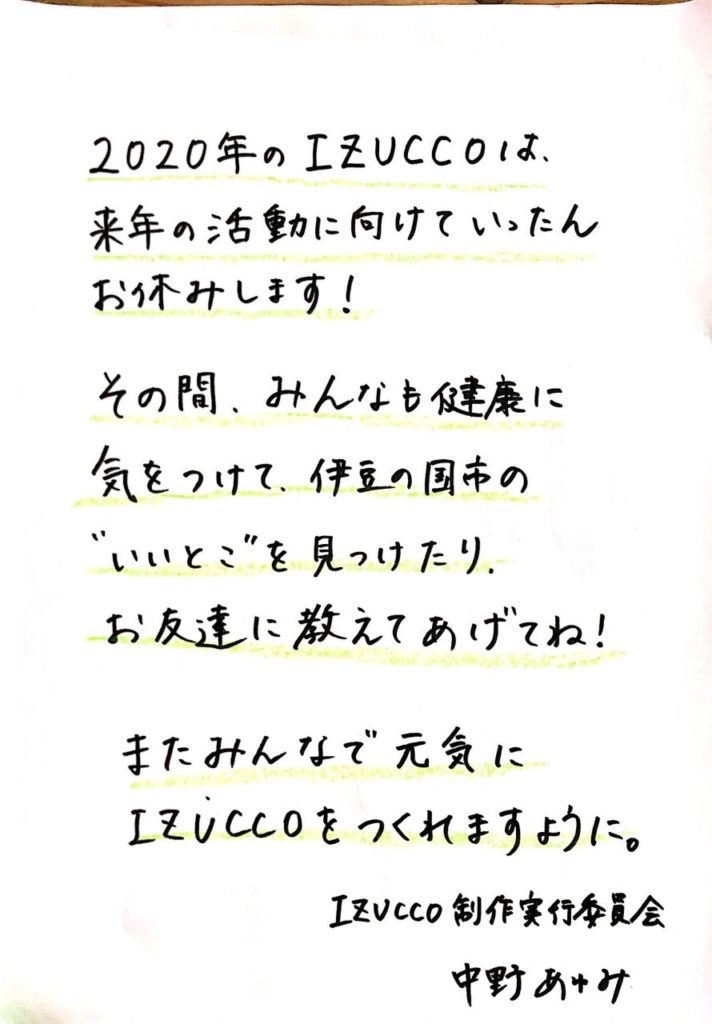 2020年のIZUCCOは、
来年の活動に向けていったん
お休みします!
その間、みんなも健康に
気をつけて、伊豆の国市の
"いいとこ"を見つけたり、
お友達に教えてあげてね!
またみんなで元気に
IZUCCOをつくれますように。
IZUCCO制作実行委員会
中野あゆみ